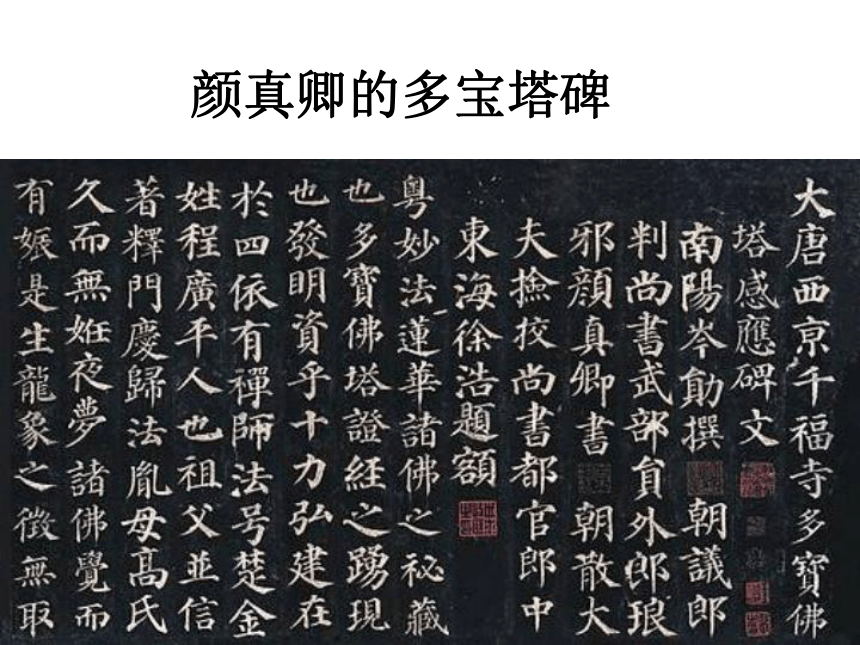 颜真卿的多宝塔碑
大唐西京千福寺多寶佛
塔感應碑文
南陽岑勛撰 朝議郎
判尚書武部員外郎琅
邪顏真卿書 朝散大
夫撿挍尚書都官郎中
東海徐浩題額
粵妙法蓮華諸佛之祕藏
也多寶佛塔證經之踴現
也發明資乎十力弘建在
於四依有禪師法号楚金
姓程廣平人也祖父並信
著釋門慶歸法胤母高氏
久而無姙夜夢諸佛覺而
有娠是生龍象之徵無取